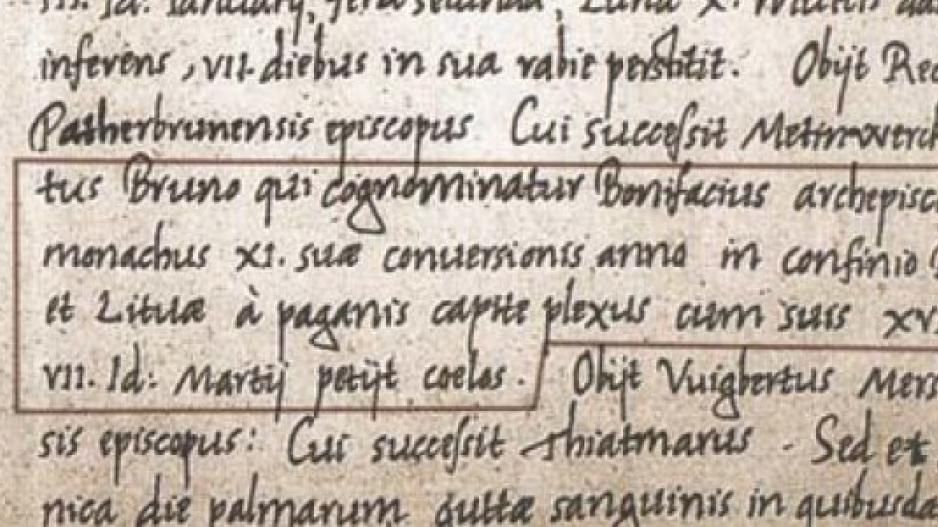 inferens, vii. diebus in sua rabie perstitit. Obijt
Patherbrunensis episcopus Cui succeſsit
tus Bruno qui cognominatur Bonifacius
monachus xi. suæ conversionis anno in confinio
et Lituæ à paganis capite plexus cum suis
vii. Id: Martij petijt coelos. Obijt Vuigbertus
sis episcopus: Cui succeſsit Thiatmarus. Sed et
nica die palmarum guttæ sanguinis in